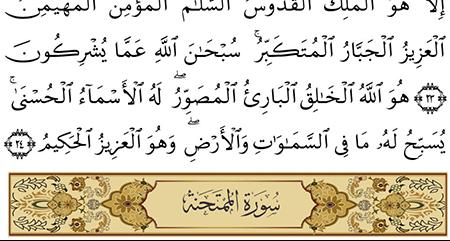 إِلَّا هُوَ ٱلْمَلِكُ ٱلْقُدُّوسُ ٱلسَّلَٰمُ ٱلْمُؤْمِنُ ٱلْمُهَيْمِنُ
ٱلْعَزِيزُ ٱلْجَبَّارُ ٱلْمُتَكَبِّرُ ۚ سُبْحَٰنَ ٱللَّهِ عَمَّا يُشْرِكُونَ
﴿٢٣﴾ هُوَ ٱللَّهُ ٱلْخَٰلِقُ ٱلْبَارِئُ ٱلْمُصَوِّرُ ۖ لَهُ ٱلْأَسْمَآءُ ٱلْحُسْنَىٰ ۚ
يُسَبِّحُ لَهُۥ مَا فِى ٱلسَّمَٰوَٰتِ وَٱلْأَرْضِ ۖ وَهُوَ ٱلْعَزِيزُ ٱلْحَكِيمُ ﴿٢٤﴾
سُورَةُ الْمُمْتَحَنَةِ